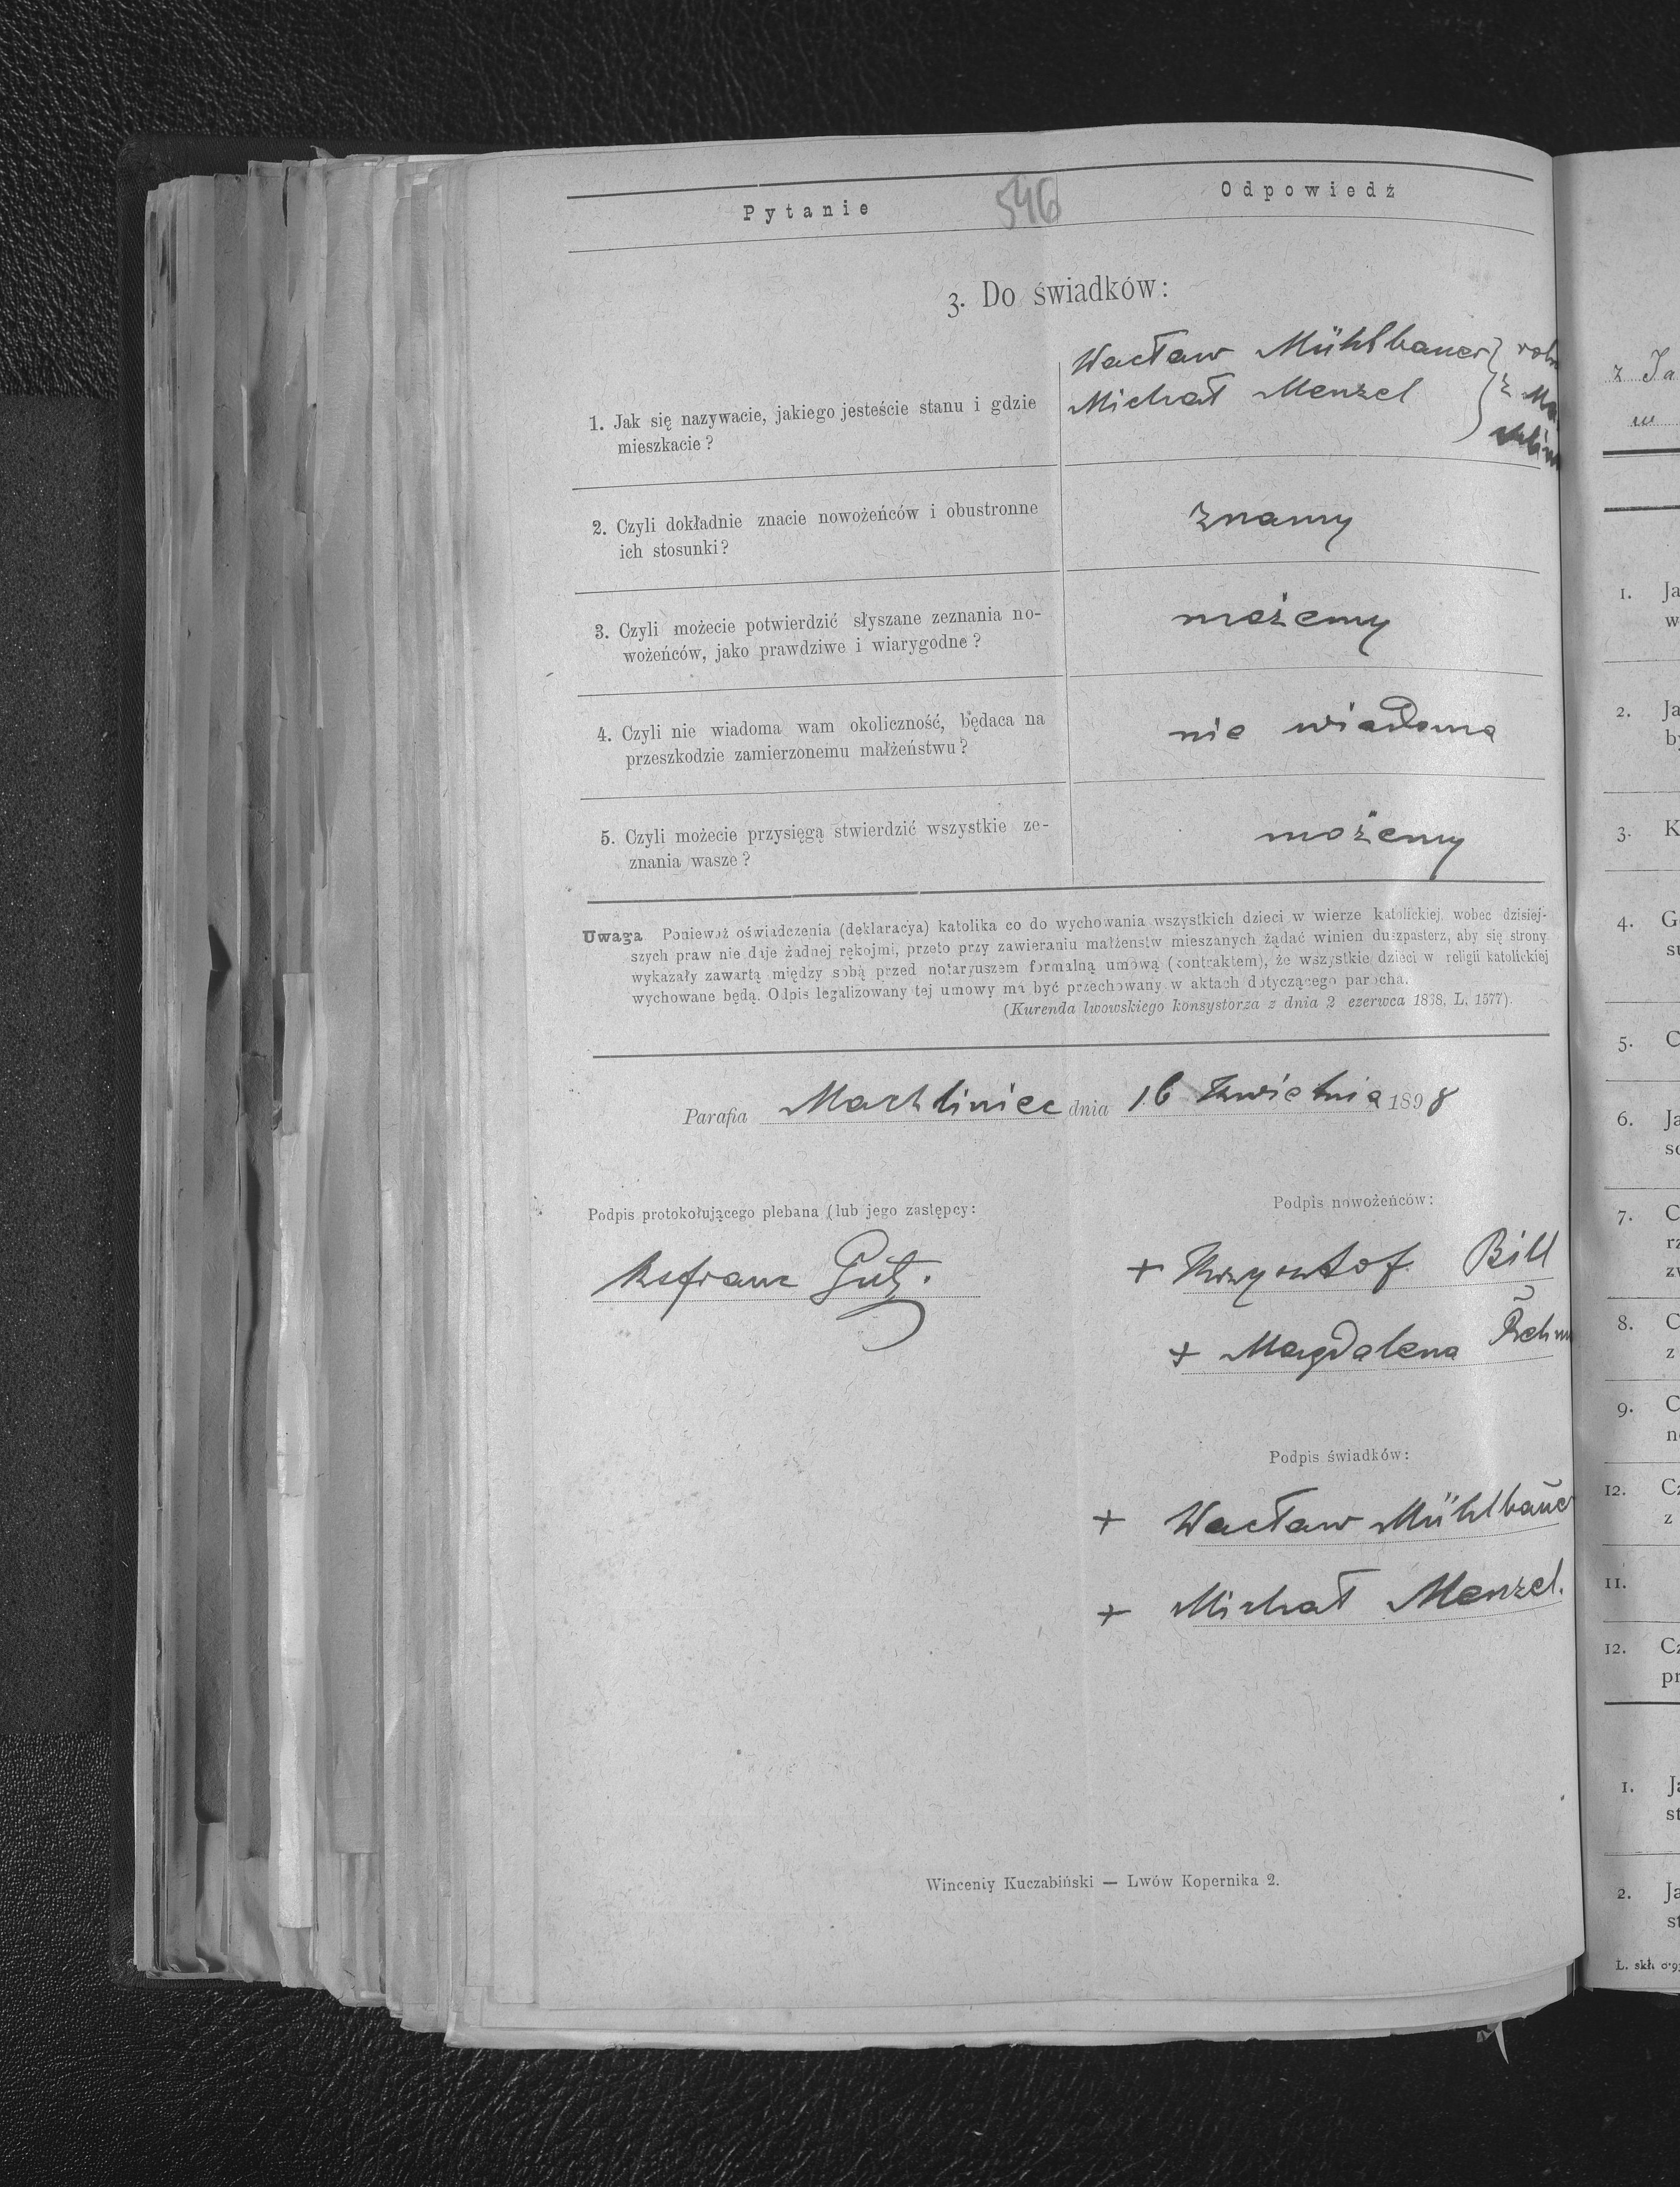 Pytanie 546 Odpowiedź
3. Do świadków:
Wacław Mühlbauer } rol
Michał Menzel } z Ma
1. Jak się nazywacie, jakiego jesteście stanu i gdzie
mieszkacie?
2. Czyli dokładnie znacie nowożeńców i obustronne
ich stosunki?
znamy
3. Czyli możecie potwierdzić słyszane zeznania no-
wożeńców, jako prawdziwe i wiarygodne?
możemy
4. Czyli nie wiadoma wam okoliczność, będaca na
przeszkodzie zamierzonemu małżeństwu?
nie wiadoma
5. Czyli możecie przysięgą stwierdzić wszystkie ze-
znania wasze?
możemy
Uwaga Ponieważ oświadczenia (deklaracya) katolika co do wychowania wszystkich dzieci w wierze katolickiej, wobec dzisiej-
szych praw nie daje żadnej rękojmi, przeto przy zawieraniu małżenstw mieszanych żądać winien duszpasterz, aby się strony
wykazały zawartą między sobą przed notaryuszem formalną umową (kontraktem), że wszystkie dzieci w religii katolickiej
wychowane będą. Odpis legalizowany tej umowy ma być przechowany w aktach dotyczącego parocha.
(Kurenda lwowskiego konsystorza z dnia 2 czerwca 1868, L. 1577).
Parafia Machliniec dnia 16 Kwietnia 1898
Podpis protokołującego plebana (lub jego zastępcy:
Podpis nowożeńców:
Gütz.
+ Krzysztof Bill
+ Magdalena
Podpis świadków:
+ Wacław Mühlbauer
+ Michał Menzel.
Winceniy Kuczabiński — Lwów Kopernika 2.
z Ja
w
1. Ja
w
2. Ja
by
3. K
4. G
su
5. C
6. Ja
sc
7. C
rz
zv
8. C
z
9. C
n
12. Cz
z
11.
12. Cz
pr
1. Ja
st
2. Ja
st